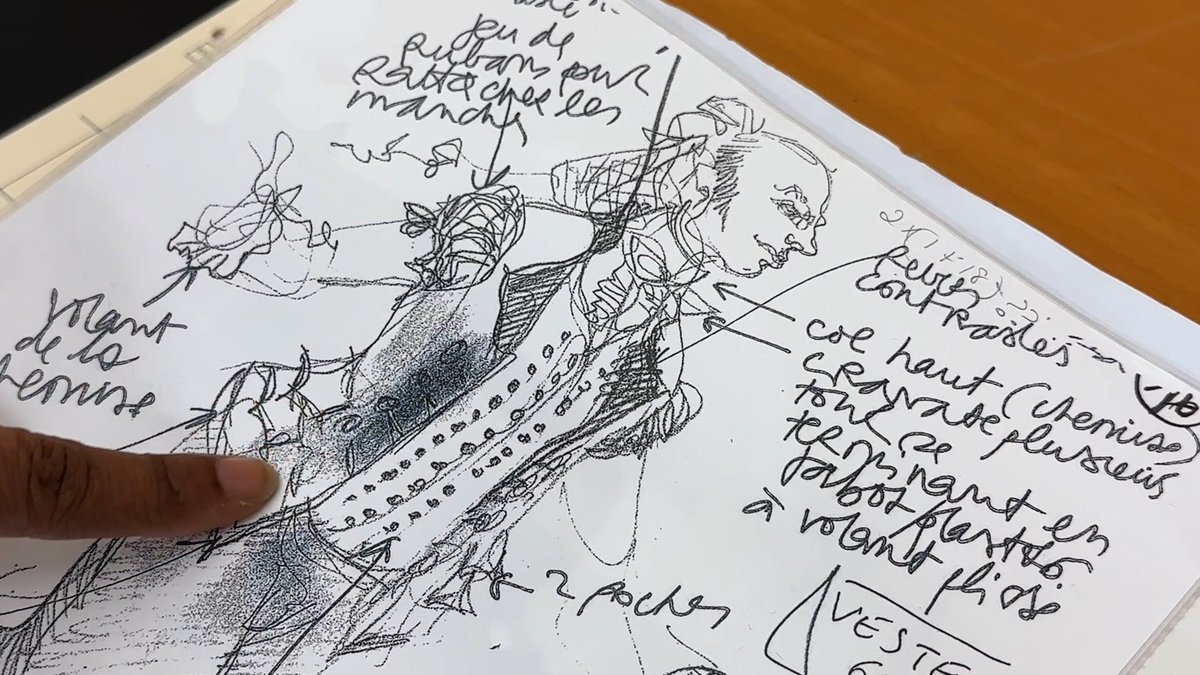 jeu de
rubans pour
rattacher les
manches
volant
de la
chemise
Revers
contrastés
col haut (chemise)
cravate plusieurs
tour se
terminant en
jabot plastron
à volant plissé
2 poches
VESTE